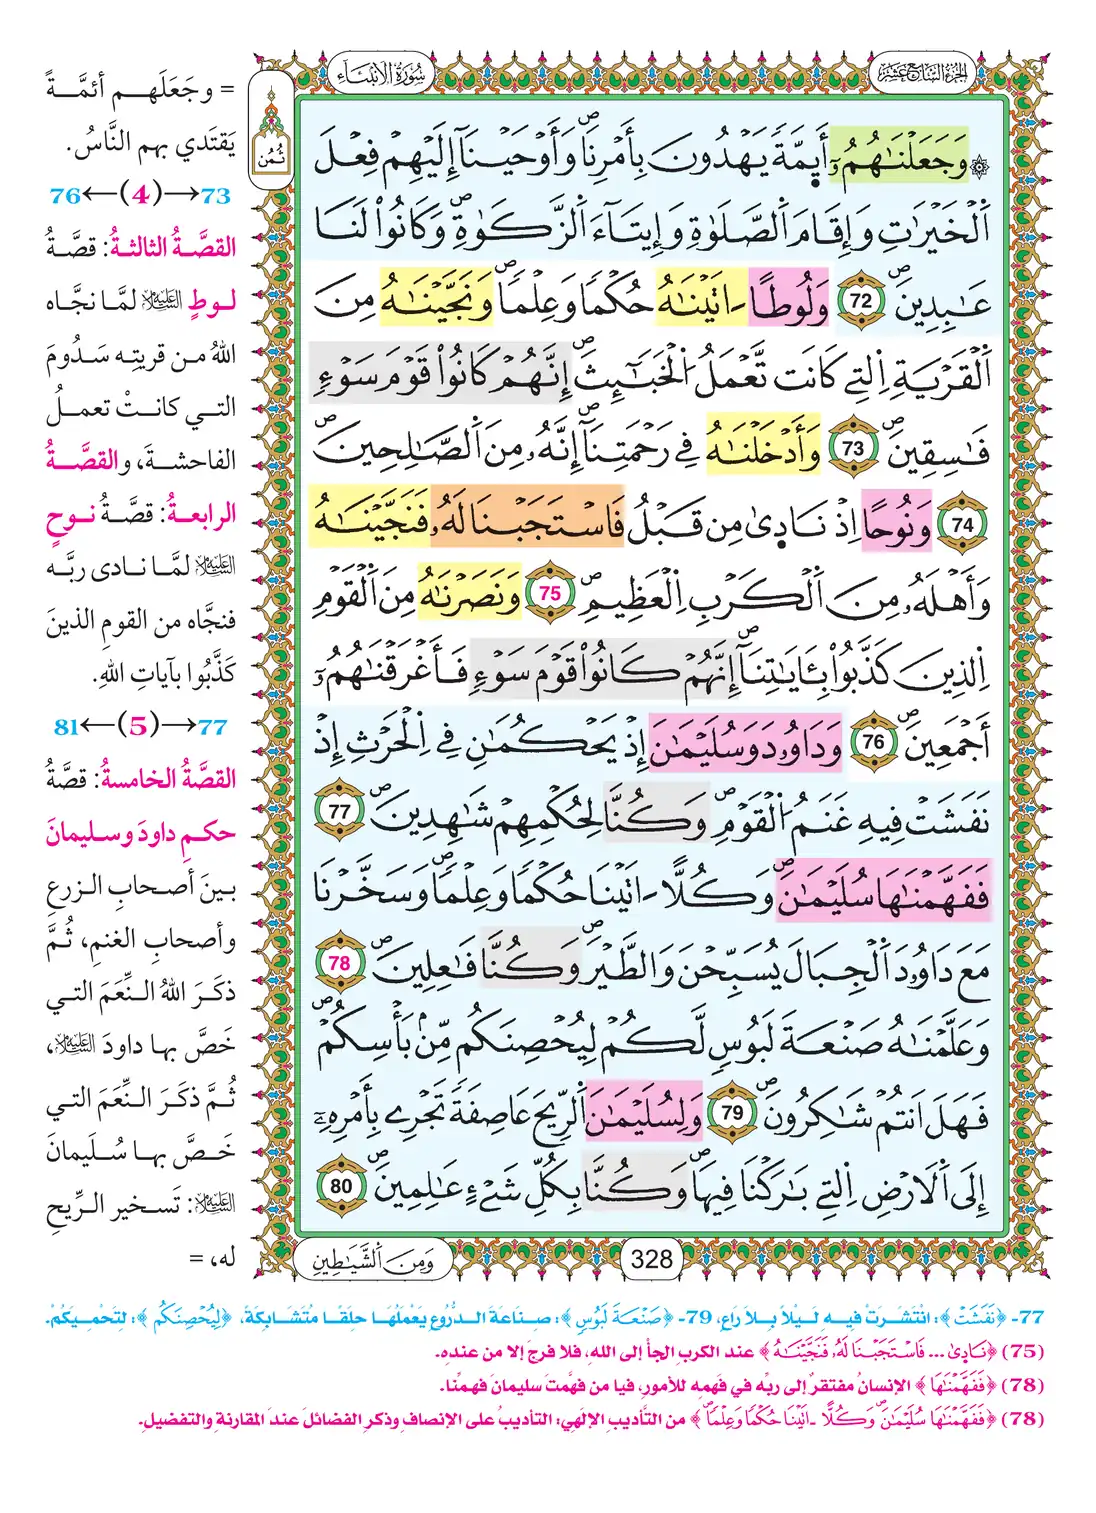 الجزء السابع عشر
سورة الأنبياء
ثمن
۞ وَجَعَلْنَٰهُمُۥٓ أَيِمَّةٗ يَهْدُونَ بِأَمْرِنَاۖ وَأَوْحَيْنَآ إِلَيْهِمْ فِعْلَ
اَ۬لْخَيْرَٰتِ وَإِقَامَ اَ۬لصَّلَوٰةِ وَإِيتَآءَ اَ۬لزَّكَوٰةِۖ وَكَانُواْ لَنَا
عَٰبِدِينَۖ 72 وَلُوطاً ءَاتَيْنَٰهُ حُكْماٗ وَعِلْماٗۖ وَنَجَّيْنَٰهُ مِنَ
اَ۬لْقَرْيَةِ اِ۬لتِے كَانَت تَّعْمَلُ اُ۬لْخَبَٰٓئِثَۖ إِنَّهُمْ كَانُواْ قَوْمَ سَوْءٖ
فَٰسِقِينَۖ 73 وَأَدْخَلْنَٰهُ فِے رَحْمَتِنَآۖ إِنَّهُۥ مِنَ اَ۬لصَّٰلِحِينَۖ
74 وَنُوحاً اِذْ نَادَىٰ مِن قَبْلُ فَاسْتَجَبْنَا لَهُۥ فَنَجَّيْنَٰهُ
وَأَهْلَهُۥ مِنَ اَ۬لْكَرْبِ اِ۬لْعَظِيمِۖ 75 وَنَصَرْنَٰهُ مِنَ اَ۬لْقَوْمِ
اِ۬لذِينَ كَذَّبُواْ بِـَٔايَٰتِنَآۖ إِنَّهُمْ كَانُواْ قَوْمَ سَوْءٖ فَأَغْرَقْنَٰهُمُۥٓ
أَجْمَعِينَۖ 76 وَدَاوُۥدَ وَسُلَيْمَٰنَ إِذْ يَحْكُمَٰنِ فِے اِ۬لْحَرْثِ إِذْ
نَفَشَتْ فِيهِ غَنَمُ اُ۬لْقَوْمِۖ وَكُنَّا لِحُكْمِهِمْ شَٰهِدِينَۖ 77
فَفَهَّمْنَٰهَا سُلَيْمَٰنَۖ وَكُلّاً ءَاتَيْنَا حُكْماٗ وَعِلْماٗۖ وَسَخَّرْنَا
مَعَ دَاوُۥدَ اَ۬لْجِبَالَ يُسَبِّحْنَ وَالطَّيْرَۖ وَكُنَّا فَٰعِلِينَۖ 78
وَعَلَّمْنَٰهُ صَنْعَةَ لَبُوسٖ لَّكُمْ لِيُحْصِنَكُم مِّنۢ بَأْسِكُمْۖ
فَهَلَ اَنتُمْ شَٰكِرُونَۖ 79 وَلِسُلَيْمَٰنَ اَ۬لرِّيحَ عَاصِفَةٗ تَجْرِے بِأَمْرِهِۦٓ
إِلَى اَ۬لَارْضِ اِ۬لتِے بَٰرَكْنَا فِيهَاۖ وَكُنَّا بِكُلِّ شَےْءٍ عَٰلِمِينَۖ 80
328
وَمِنَ اَ۬لشَّيَٰطِينِ
= وجَعَلَهـم أئمَّـةً
يَقتَدي بهم النَّاسُ.
73→(4)←76
القصَّةُ الثالثةُ: قصَّةُ
لـوطٍ عليه السلام لمَّا نجَّاه
اللهُ من قريتِه سَدُومَ
التـي كانـتْ تعمـلُ
الفاحشةَ، والقصَّـةُ
الرابعـةُ: قصَّةُ نـوحٍ
عليه السلام لمَّا نادى ربَّه
فنجَّاه من القومِ الذينَ
كَذَّبُوا بآياتِ اللهِ.
77→(5)←81
القصَّةُ الخامسةُ: قصَّةُ
حكمِ داودَ وسليمانَ
بينَ أصحابِ الزرعِ
وأصحابِ الغنمِ، ثُمَّ
ذكَـرَ اللهُ النِّعَمَ التـي
خَصَّ بها داودَ عليه السلام،
ثُـمَّ ذكَـرَ النِّعَمَ التـي
خَـصَّ بهـا سُـلَيمانَ
عليه السلام: تَسـخير الـرِّيحِ
له، =
77- ﴿نَفَشَتْ﴾: انْتَشَـرَتْ فيـه لَـيْلًا بـلا رَاعٍ، 79- ﴿صَنْعَةَ لَبُوسٍ﴾: صنـاعَةَ الـدُّرُوعِ يَعْمَلُهَـا حِلَقًـا مُتَشَـابِكَةً، ﴿لِيُحْصِنَكُم﴾: لتَحْميكُمْ.
(75) ﴿نَادَىٰ ... فَاسْتَجَبْنَا لَهُۥ فَنَجَّيْنَٰهُ﴾ عند الكربِ الجأ إلى الله، فلا فرجَ إلا من عنده.
(78) ﴿فَفَهَّمْنَٰهَا﴾ الإنسانُ مفتقرٌ إلى ربِّه في فهمِه للأمورِ، فيا من فهَّمتَ سليمانَ فهمنا.
(78) ﴿فَفَهَّمْنَٰهَا سُلَيْمَٰنَۖ وَكُلّاً ءَاتَيْنَا حُكْماٗ وَعِلْماٗ﴾ من التَّأديبِ الإلهيِّ: التأديبُ على الإنصافِ وذكرِ الفضائلَ عندَ المقارنةِ والتفضيلِ.